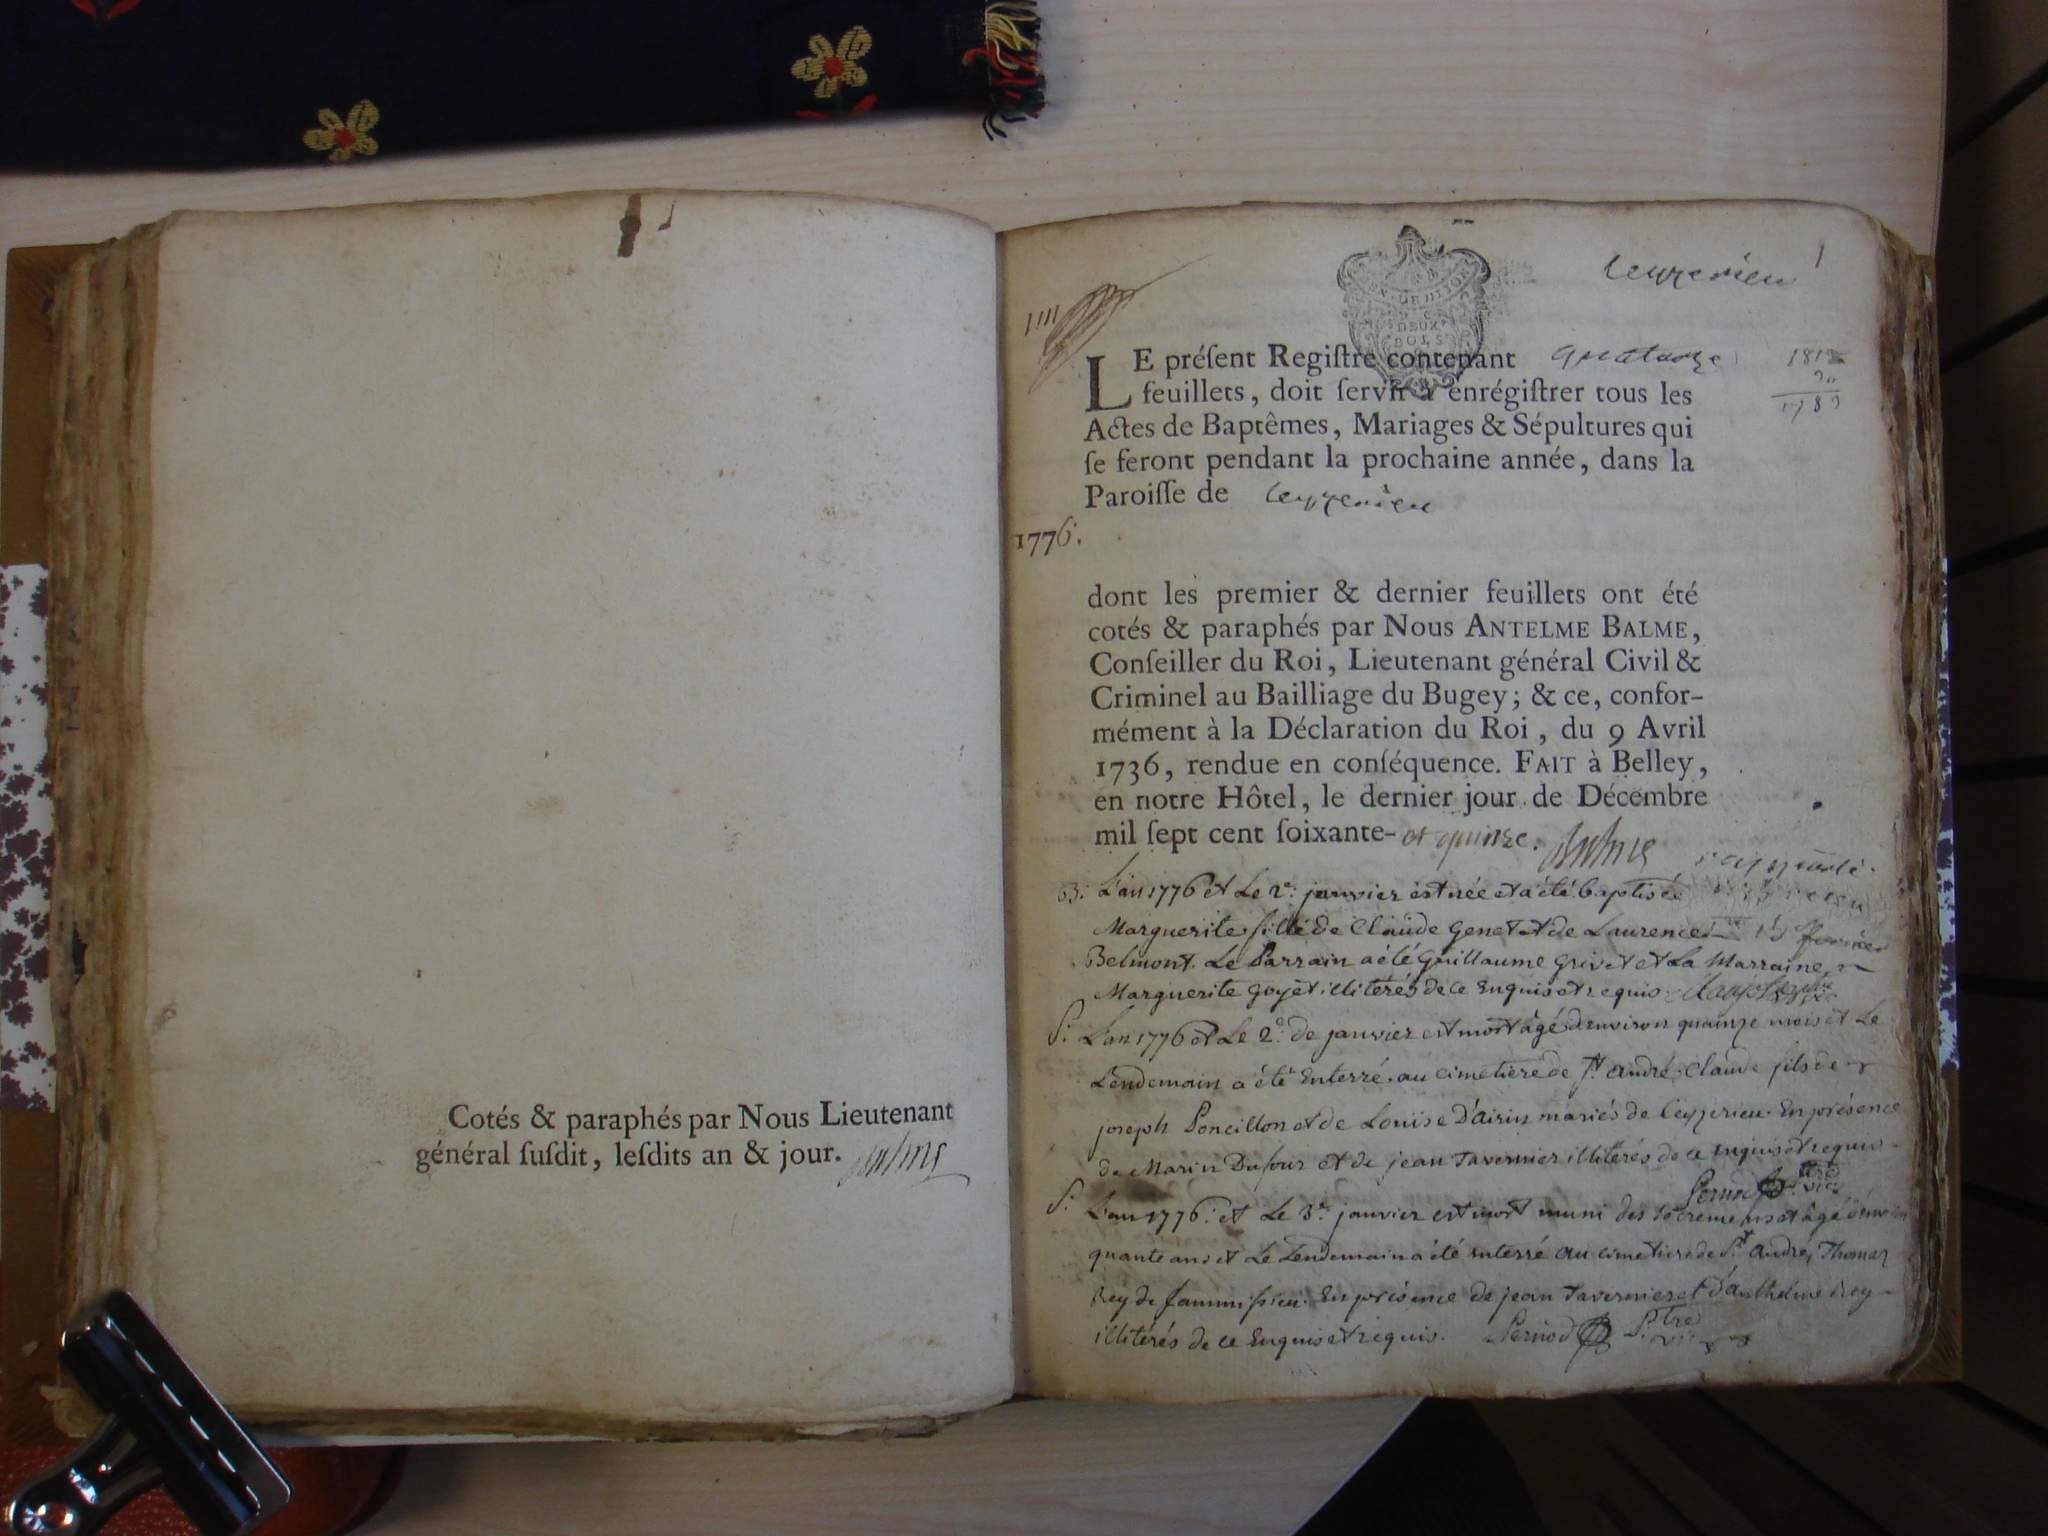 Cotés & paraphés par Nous Lieutenant
général ſuſdit, leſdits an & jour.
leyzerieu
1
GEN. DE DIJON
DEUX
SOLS
LE préſent Regiſtre contenant quatorze
feuillets, doit ſervir à enrégiſtrer tous les
Actes de Baptêmes, Mariages & Sépultures qui
ſe feront pendant la prochaine année, dans la
Paroiſſe de leyzerieu
1776.
dont les premier & dernier feuillets ont été
cotés & paraphés par Nous ANTELME BALME,
Conſeiller du Roi, Lieutenant général Civil &
Criminel au Bailliage du Bugey; & ce, confor-
mément à la Déclaration du Roi, du 9 Avril
1736, rendue en conſéquence. FAIT à Belley,
en notre Hôtel, le dernier jour de Décembre
mil ſept cent ſoixante-et quinze.
L'an 1776 et Le 2e: janvier est née et a été baptisée
Marguerite fille de Claude Genet et de Laurence
Belmont. Le Parrain a été Guillaume Grivet et La Marraine
Marguerite Goyet illitérés de ce Enquis et requis
S: L'an 1776 et Le 2e. de janvier est mort âgé denviron quainze mois et Le
Lendemain a été Enterré au cimetiere de St. andré. Claude fils de
joseph Poncillon et de Louise D'airin mariés de leyzerieu. En présence
de Marin Dufour et de jean Tavernier illitérés de ce enquis et requis
Pernod
S: L'an 1776: et Le 3e. janvier est mort muni des sacremens et âgé denviron
quante ans et Le Lendemain a été enterré au cimetiere de St. andré, Thomas
Rey de En présence de jean Tavernier et D'anthelme Rey
illitérés de ce Enquis et requis. Pernod Ptre